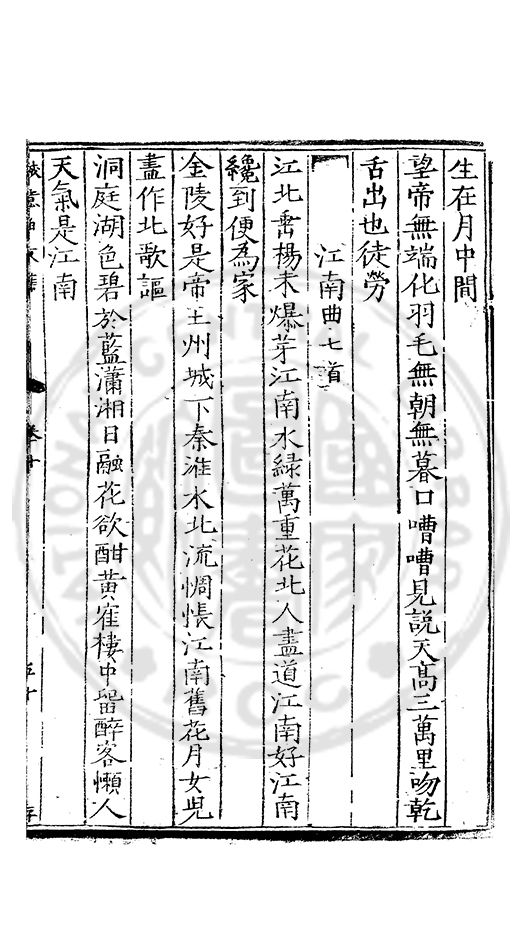 生在月中間
望帝無端化羽毛無朝無暮口嘈嘈見説天高三萬里吻乾
舌出也徒勞
江南曲七首
江北畨楊未爆芽江南水綠萬重花北人盡道江南好江南
纔到便為家
金陵好是帝王州城下秦淮水北流惆悵江南舊花月女兒
盡作北歌謳
洞庭湖色碧於藍瀟湘日融花欲酣黄寉樓中留醉客懶人
天氣是江南